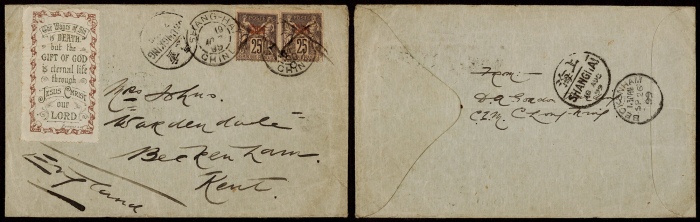 The Wages of Sin
is DEATH,
but the
GIFT OF GOD
is eternal life
through
JESUS CHRIST
our
LORD
SHANG-HAI
19
CHINE
25
25
CHINE
Mrs Johns.
Wardendale
Beckenham.
Kent.
England
From:
C.I.M. Chungking
上海
SHANGHAI
BECKENHAM
99